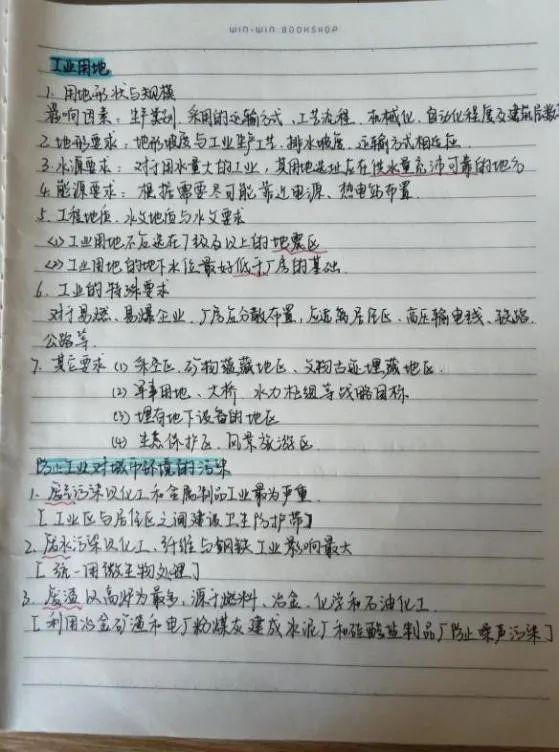 WIN-WIN BOOKSHOP
工业用地
1. 用地形状与规模
影响因素：生产类别、采用的运输方式、工艺流程、机械化、自动化程度及建筑层数
2. 地形要求：地形坡度与工业生产工艺、排水坡度、运输方式相适应
3. 水源要求：对于用水量大的工业，其用地选址应在供水量充沛可靠的地方
4. 能源要求：根据需要尽可能靠近电源、热电站布置.
5. 工程地质、水文地质与水文要求
<1> 工业用地不应选在7级及以上的地震区
<2> 工业用地的地下水位最好低于厂房的基础.
6. 工业的特殊要求
对于易燃、易爆企业，厂房应分散布置，应远离居住区、高压输电线、铁路.
公路等.
7. 其它要求 (1) 采空区、矿物蕴藏地区、文物古迹埋藏地区.
(2) 军事用地、大桥、水力枢纽等战略目标
(3) 埋有地下设备的地区
(4) 生态保护区、风景旅游区
防止工业对城市环境的污染
1. 废气污染以化工和金属制品工业最为严重.
[工业区与居住区之间建设卫生防护带]
2. 废水污染以化工、纤维与钢铁工业影响最大
[统一用微生物处理]
3. 废渣以高炉为最多，源于燃料、冶金、化学和石油化工.
[利用冶金矿渣和电厂粉煤灰建成水泥厂和硅酸盐制品厂防止噪声污染]